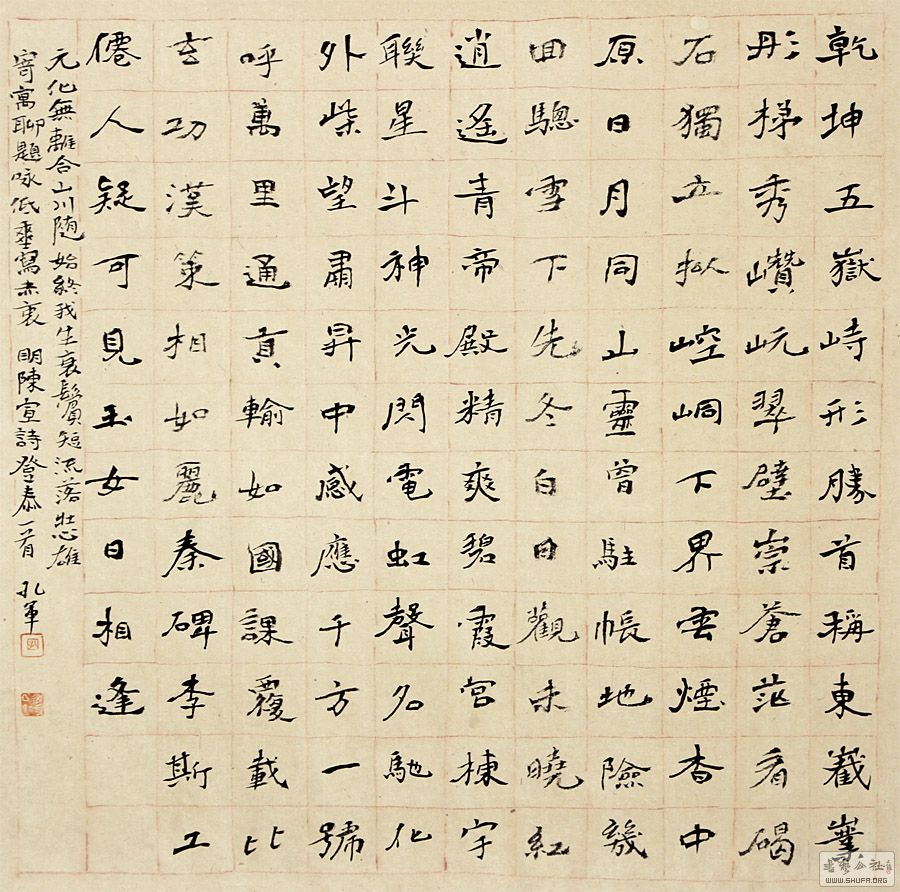 乾坤五嶽峙形勝首稱東巀
彤梯秀巑岏翠壁崇蒼茫看碣
石獨立拟崆峒下界雲煙杳中
原日月同山靈曾駐帳地險幾
回驄雪下先冬白日觀未曉紅
逍遙青帝殿精爽碧霞宮棟宇
聯星斗神光閃電虹聲名馳化
外柴望肅昇中感應千方一號
呼萬里通貢輸如國課覆載比
玄功漢策相如麗秦碑李斯工
僊人疑可見玉女日相逢
元化無離合山川随始終我生衰鬢短流落悲雄
寄寓聊題咏低垂寫赤衷 明陳宣詩登泰一首 孔軍
WWW.SHUFA.ORG